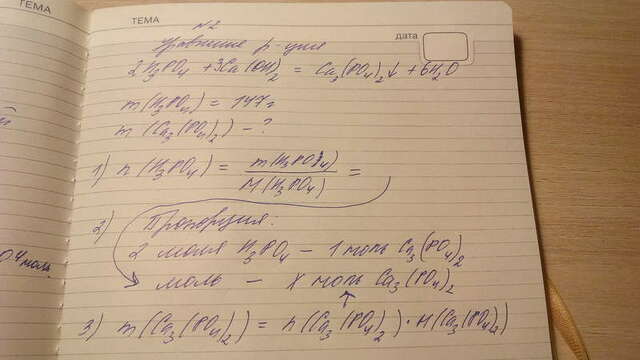 ТЕМА
ТЕМА
дата
№2
уравнение р-ция
2H₃PO₄ + 3Ca(OH)₂ = Ca₃(PO₄)₂↓ + 6H₂O
m(H₃PO₄) = 147г
m(Ca₃(PO₄)₂) - ?
1) n(H₃PO₄) = m(H₃PO₄) / M(H₃PO₄) =
2) Пропорция:
2 моля H₃PO₄ - 1 моль Ca₃(PO₄)₂
0.4 моль
моль - x моль Ca₃(PO₄)₂
3) m(Ca₃(PO₄)₂) = n(Ca₃(PO₄)₂) · M(Ca₃(PO₄)₂)